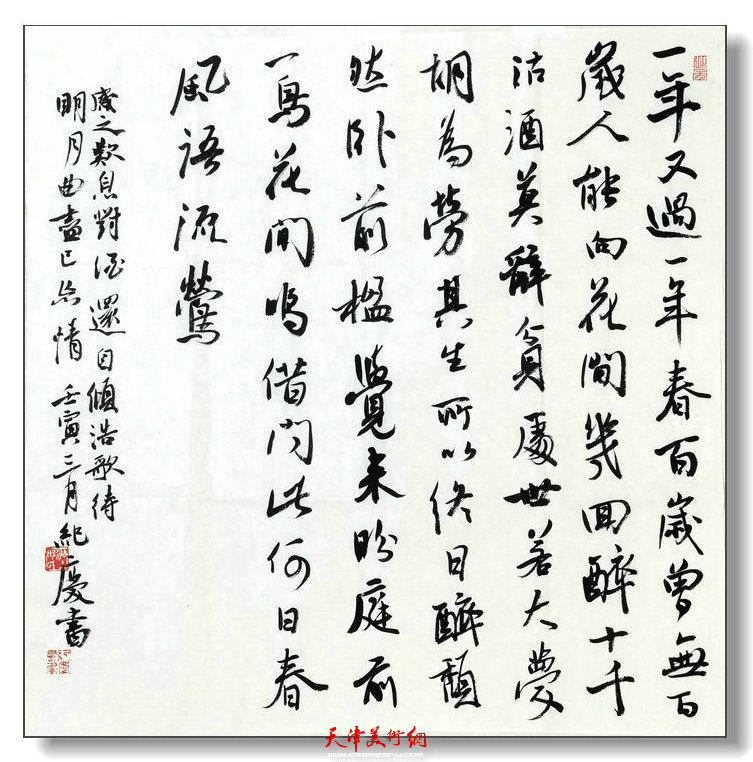 一年又過一年春百歲曾無百
歲人能向花間幾回醉十千
沽酒莫辭貧處世若大夢
胡為勞其生所以終日醉頹
然卧前楹覺来盼庭前
一鳥花間鳴借问此何日春
風語流鶯
感之歎息對酒還自傾浩歌待
明月曲盡已忘情 壬寅三月紀慶書
天津美術網